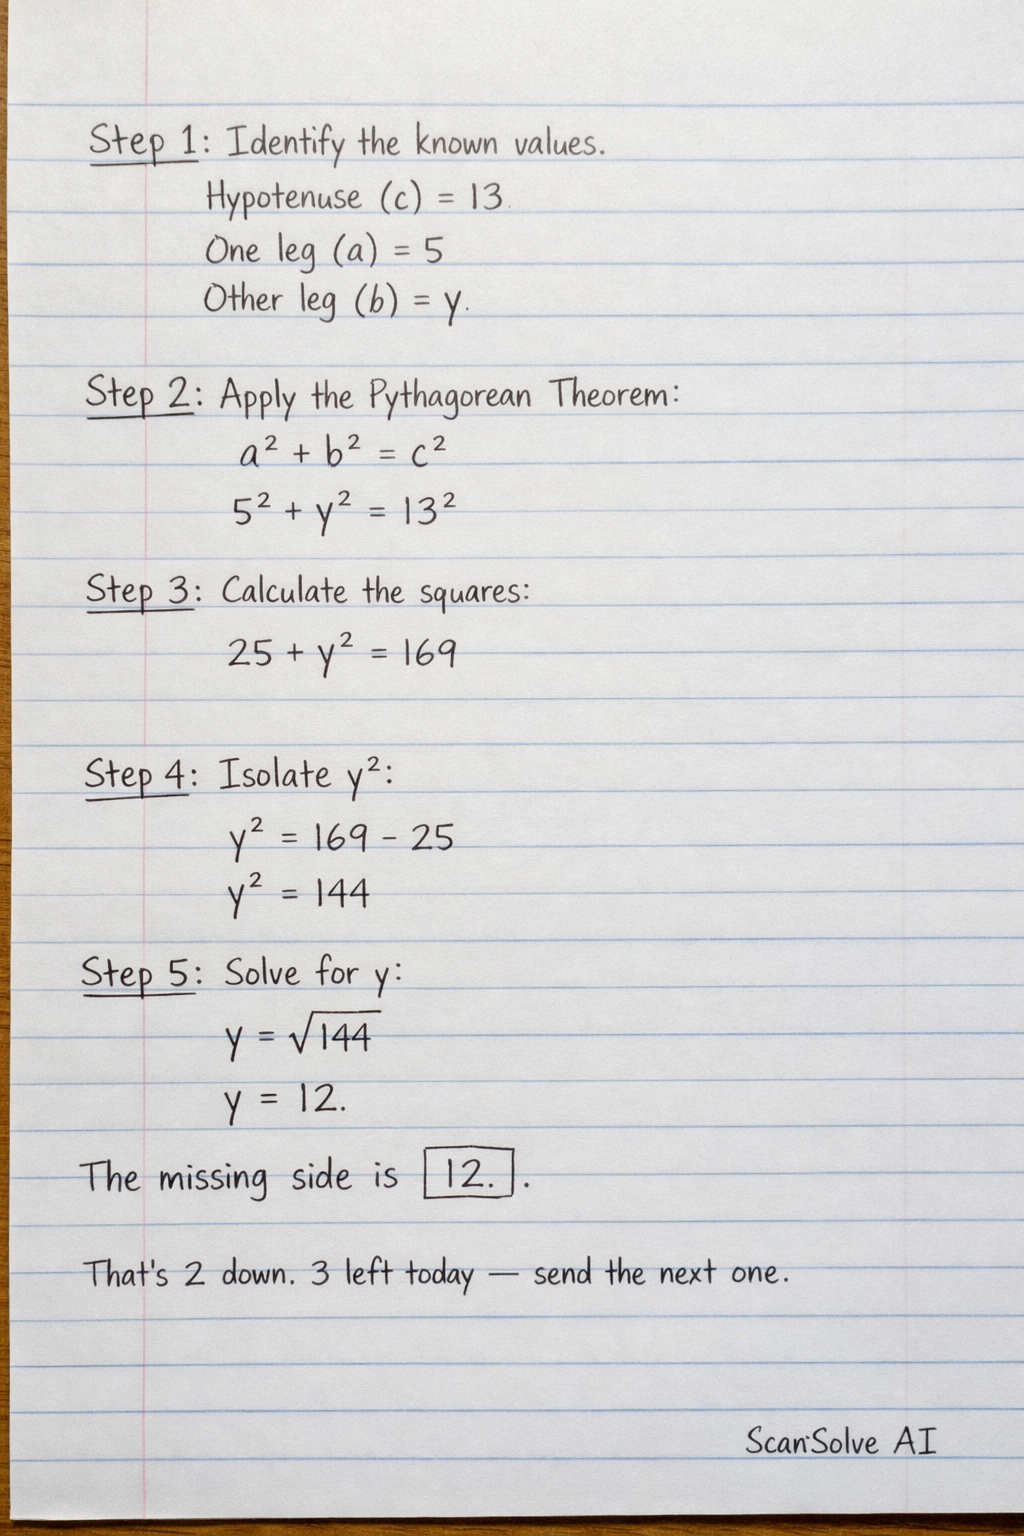 Step 1: Identify the known values.
Hypotenuse (c) = 13.
One leg (a) = 5
Other leg (b) = y.
Step 2: Apply the Pythagorean Theorem:
a² + b² = c²
5² + y² = 13²
Step 3: Calculate the squares:
25 + y² = 169
Step 4: Isolate y²:
y² = 169 - 25
y² = 144
Step 5: Solve for y:
y = √144
y = 12.
The missing side is 12. .
That's 2 down. 3 left today — send the next one.
ScanSolve AI